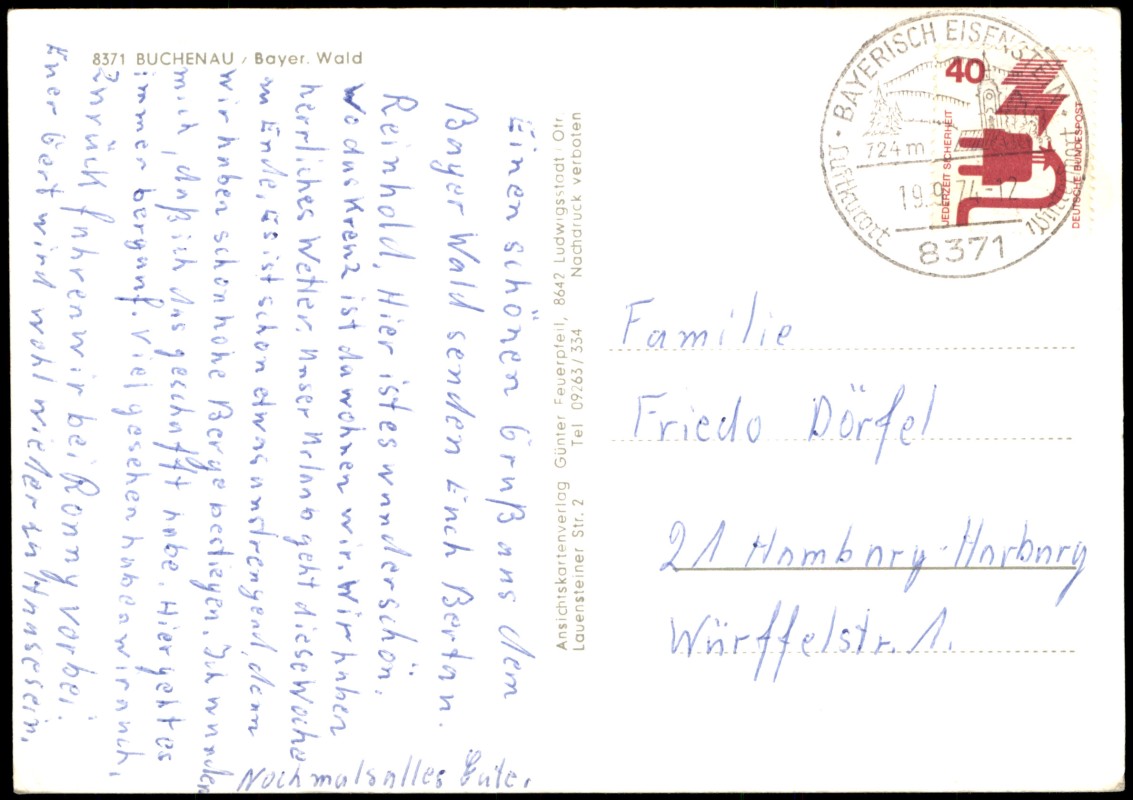 8371 BUCHENAU / Bayer. Wald
Einen schönen Gruß aus dem
Bayer Wald senden Euch Berta u.
Reinhold. Hier ist es wunderschön.
Wo das Kreuz ist da wohnen wir. Wir haben
herrliches Wetter. Unser Urlaub geht diese Woche
zu Ende, Es ist schon etwas anstrengend, denn
wir haben schon hohe Berge bestiegen. Ich wunder
mich, daß ich das geschafft habe. Hier geht es
immer bergauf. Viel gesehen haben wir auch.
Zurück fahren wir bei Ronny vorbei.
Euer Gert wird wohl wieder zu Hause sein.
Nochmals alles Gute.
Ansichtskartenverlag Günter Feuerpfeil, 8642 Ludwigsstadt / Ofr
Lauensteiner Str. 2 Tel 09263/334 Nachdruck verboten
BAYERISCH EISENSTEIN
724 m
19.9.74-12
8371
Luftkurort
Wintersport
40
JEDERZEIT SICHERHEIT
DEUTSCHE BUNDESPOST
Familie
Friedo Dörfel
21 Hamburg-Harburg
Würffelstr. 1.